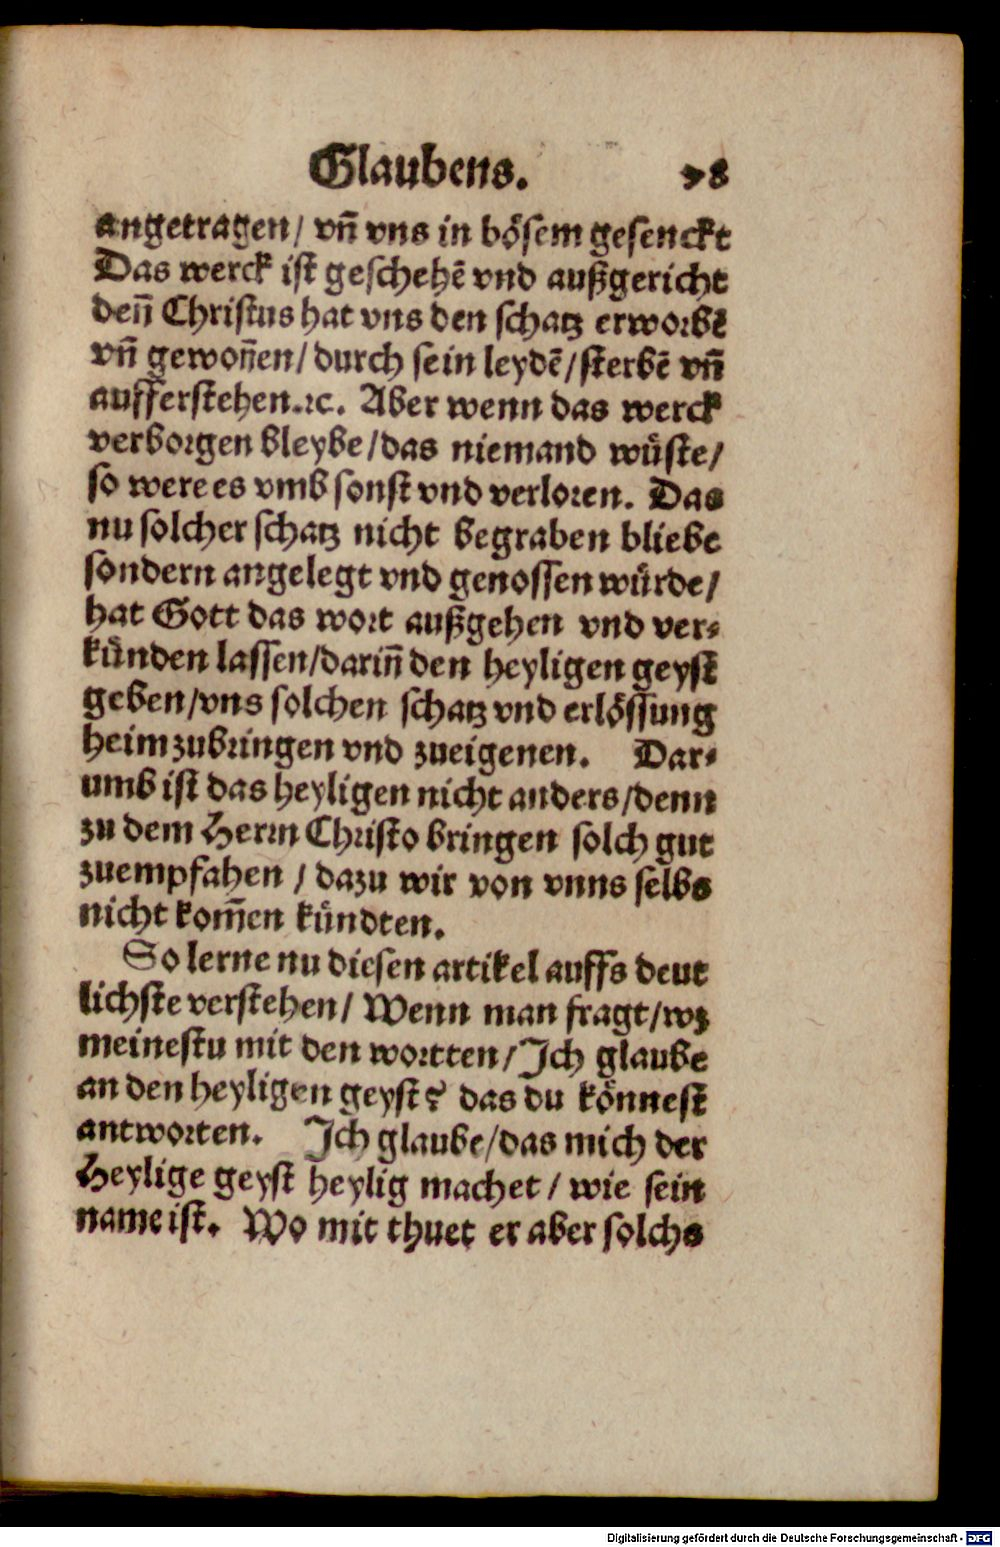 Glaubens. 78
angetragen/ vn̄ vns in bösem gesenckt
Das werck ist geschehē vnd außgericht
den̄ Christus hat vns den schatz erworbē
vn̄ gewon̄en/ durch sein leydē/ sterbē vn̄
aufferstehen.⁊c. Aber wenn das werck
verborgen bleybe/ das niemand wüste/
so were es vmb sonst vnd verloren. Das
nu solcher schatz nicht begraben bliebe
sondern angelegt vnd genossen würde/
hat Gott das wort außgehen vnd ver⸗
künden lassen/ darin̄ den heyligen geyst
geben/ vns solchen schatz vnd erlössung
heimzubringen vnd zueigenen. Dar⸗
umb ist das heyligen nicht anders/ denn
zu dem Herrn Christo bringen solch gut
zuempfahen / dazu wir von vnns selbs
nicht kom̄en kündten.
So lerne nu diesen artikel auffs deut
lichste verstehen/ Wenn man fragt/ wz
meinestu mit den wortten/ Ich glaube
an den heyligen geyst? das du könnest
antworten. Ich glaube/ das mich der
Heylige geyst heylig machet / wie sein
name ist. Wo mit thuet er aber solchs
Digitalisierung gefördert durch die Deutsche Forschungsgemeinschaft - DFG